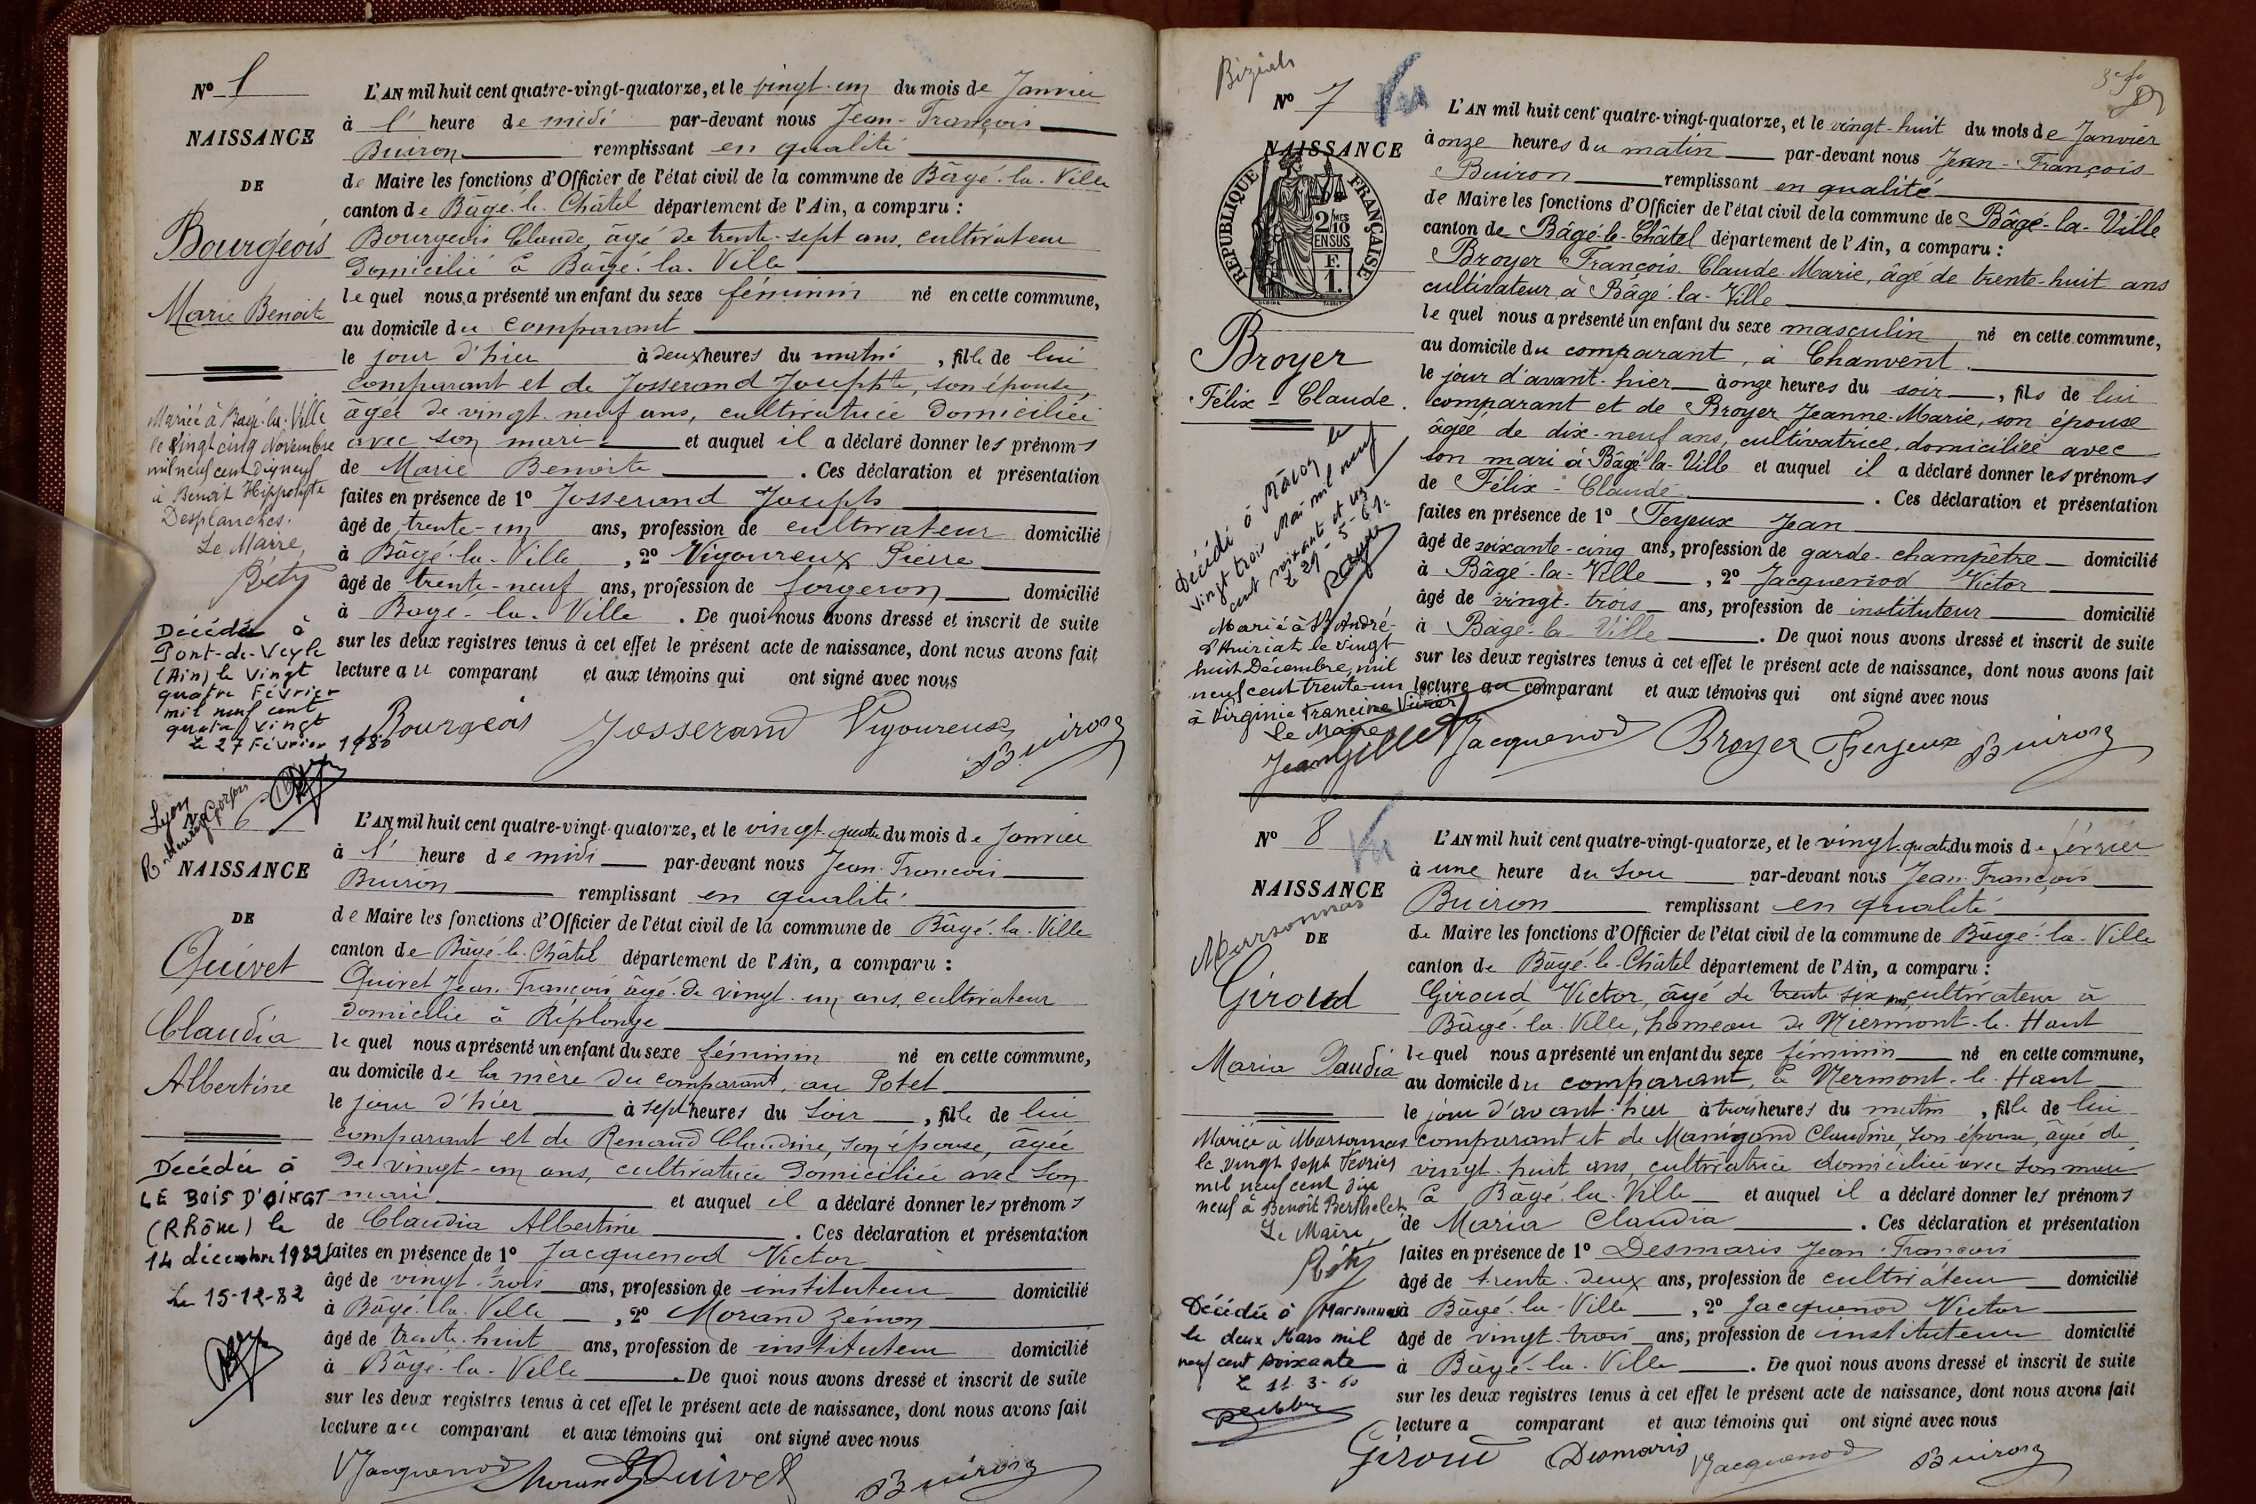 Nº
NAISSANCE
DE
Bourgeois
Marie Benoite
Mariée à Bagé-la-Ville
le vingt cinq Novembre
mil neuf cent dix neuf
à Benoit Hippolyte
Desplanches.
Le Maire,
Décédée à
Pont-de-Veyle
(Ain) le vingt
quatre Février
mil neuf cent
quatre vingt
le 27 Février 1980
L'AN mil huit cent quatre-vingt-quatorze, et le vingt-un du mois de Janvier
à l' heure de midi par-devant nous Jean-François
Buiron remplissant en qualité
de Maire les fonctions d'Officier de l'état civil de la commune de Bâgé-la-Ville
canton de Bâgé-le-Châtel département de l'Ain, a comparu :
Bourgeois Claude, âgé de trente-sept ans, cultivateur
domicilié à Bâgé-la-Ville
lequel nous a présenté un enfant du sexe féminin né en cette commune,
au domicile du comparant
le jour d'hier à deux heures du matin, fille de lui
comparant et de Josserand Josephte, son épouse,
âgée de vingt-neuf ans, cultivatrice domiciliée
avec son mari et auquel il a déclaré donner les prénoms
de Marie Benoite. Ces déclaration et présentation
faites en présence de 1º Josserand Joseph
âgé de trente-un ans, profession de cultivateur domicilié
à Bâgé-la-Ville, 2º Vigoureux Pierre
âgé de trente-neuf ans, profession de forgeron domicilié
à Bagé-la-Ville. De quoi nous avons dressé et inscrit de suite
sur les deux registres tenus à cet effet le présent acte de naissance, dont nous avons fait
lecture au comparant et aux témoins qui ont signé avec nous
Bourgeois Josserand Vigoureux Buiron
Lyon
6
NAISSANCE
DE
Quivet
Claudia
Albertine
Décédée à
LE BOIS D'OINGT
(Rhône) le
14 décembre 1982
Le 15-12-82
L'AN mil huit cent quatre-vingt-quatorze, et le vingt-quatre du mois de Janvier
à l' heure de midi par-devant nous Jean-François
Buiron remplissant en qualité
de Maire les fonctions d'Officier de l'état civil de la commune de Bâgé-la-Ville
canton de Bâgé-le-Châtel département de l'Ain, a comparu :
Quivet Jean-François, âgé de vingt-un ans, cultivateur
domicilié à Réplonge
lequel nous a présenté un enfant du sexe féminin né en cette commune,
au domicile de la mère du comparant, au Potet
le jour d'hier à sept heures du soir, fille de lui
comparant et de Renaud Claudine, son épouse, âgée
de vingt-un ans, cultivatrice domiciliée avec son
mari et auquel il a déclaré donner les prénoms
de Claudia Albertine. Ces déclaration et présentation
faites en présence de 1º Jacquenod Victor
âgé de vingt-trois ans, profession de instituteur domicilié
à Bâgé-la-Ville, 2º Morand Zénon
âgé de trente-huit ans, profession de instituteur domicilié
à Bâgé-la-Ville. De quoi nous avons dressé et inscrit de suite
sur les deux registres tenus à cet effet le présent acte de naissance, dont nous avons fait
lecture au comparant et aux témoins qui ont signé avec nous
VJacquenod Morand Quivet Buiron
Biziat
Nº 7 Vu
NAISSANCE
RÉPUBLIQUE FRANÇAISE
2/10MES
EN SUS
F.
1.
Broyer
Félix-Claude.
Décédé à Mâcon le
vingt trois Mai mil neuf
cent soixante et un
Le 29-5-61.
Marié à St André-
d'Huiriat le vingt
huit Décembre mil
neuf cent trente-un
à Virginie Francine Vivier
Le Maire
Jean Gillet
L'AN mil huit cent quatre-vingt-quatorze, et le vingt-huit du mois de Janvier
à onze heures du matin par-devant nous Jean-François
Buiron remplissant en qualité
de Maire les fonctions d'Officier de l'état civil de la commune de Bâgé-la-Ville
canton de Bâgé-le-Châtel département de l'Ain, a comparu :
Broyer François-Claude-Marie, âgé de trente-huit ans
cultivateur à Bâgé-la-Ville
lequel nous a présenté un enfant du sexe masculin né en cette commune,
au domicile du comparant, à Chanvent
le jour d'avant-hier à onze heures du soir, fils de lui
comparant et de Broyer Jeanne-Marie, son épouse
âgée de dix-neuf ans, cultivatrice, domiciliée avec
son mari à Bâgé-la-Ville et auquel il a déclaré donner les prénoms
de Félix-Claude. Ces déclaration et présentation
faites en présence de 1º Feyeux Jean
âgé de soixante-cinq ans, profession de garde-champêtre domicilié
à Bâgé-la-Ville, 2º Jacquenod Victor
âgé de vingt-trois ans, profession de instituteur domicilié
à Bâgé-la-Ville. De quoi nous avons dressé et inscrit de suite
sur les deux registres tenus à cet effet le présent acte de naissance, dont nous avons fait
lecture au comparant et aux témoins qui ont signé avec nous
VJacquenod Broyer Feyeux Buiron
Nº 8 Vu
NAISSANCE
Marsonnas
DE
Giroud
Maria Claudia
Mariée à Marsonnas
le vingt sept Février
mil neuf cent dix
neuf à Benoît Berthelet
Le Maire
Décédée à Marsonnas
le deux Mars mil
neuf cent soixante
Le 11-3-60
L'AN mil huit cent quatre-vingt-quatorze, et le vingt-quatre du mois de février
à une heure du soir par-devant nous Jean-François
Buiron remplissant en qualité
de Maire les fonctions d'Officier de l'état civil de la commune de Bâgé-la-Ville
canton de Bâgé-le-Châtel département de l'Ain, a comparu :
Giroud Victor, âgé de trente six ans cultivateur à
Bâgé-la-Ville, hameau de Mermont-le-Haut
lequel nous a présenté un enfant du sexe féminin né en cette commune,
au domicile du comparant, à Mermont-le-Haut
le jour d'avant-hier à trois heures du matin, fille de lui
comparant et de Manigand Claudine, son épouse, âgée de
vingt-huit ans, cultivatrice domiciliée avec son mari
à Bâgé-la-Ville et auquel il a déclaré donner les prénoms
de Maria Claudia. Ces déclaration et présentation
faites en présence de 1º Desmaris Jean-François
âgé de trente-deux ans, profession de cultivateur domicilié
à Bâgé-la-Ville, 2º Jacquenod Victor
âgé de vingt-trois ans, profession de instituteur domicilié
à Bâgé-la-Ville. De quoi nous avons dressé et inscrit de suite
sur les deux registres tenus à cet effet le présent acte de naissance, dont nous avons fait
lecture a comparant et aux témoins qui ont signé avec nous
Giroud Desmaris VJacquenod Buiron